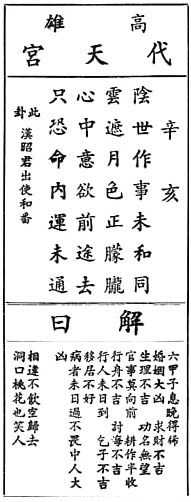 高雄
代天宮
辛亥
陰世作事未和同
雲遮月色正朦朧
心中意欲前途去
只恐命內運未通
此卦 漢昭君出使和番
解曰
六甲子息晚得佈
婚姻大凶 求財不吉
生理不吉 功名無望
官事莫向前 耕作半收
行舟不吉 討海不吉
行人未日到 乞子不吉
移居不好
病者未日過不畏中人大
凶
相逢不飲空歸去
洞口桃花也笑人